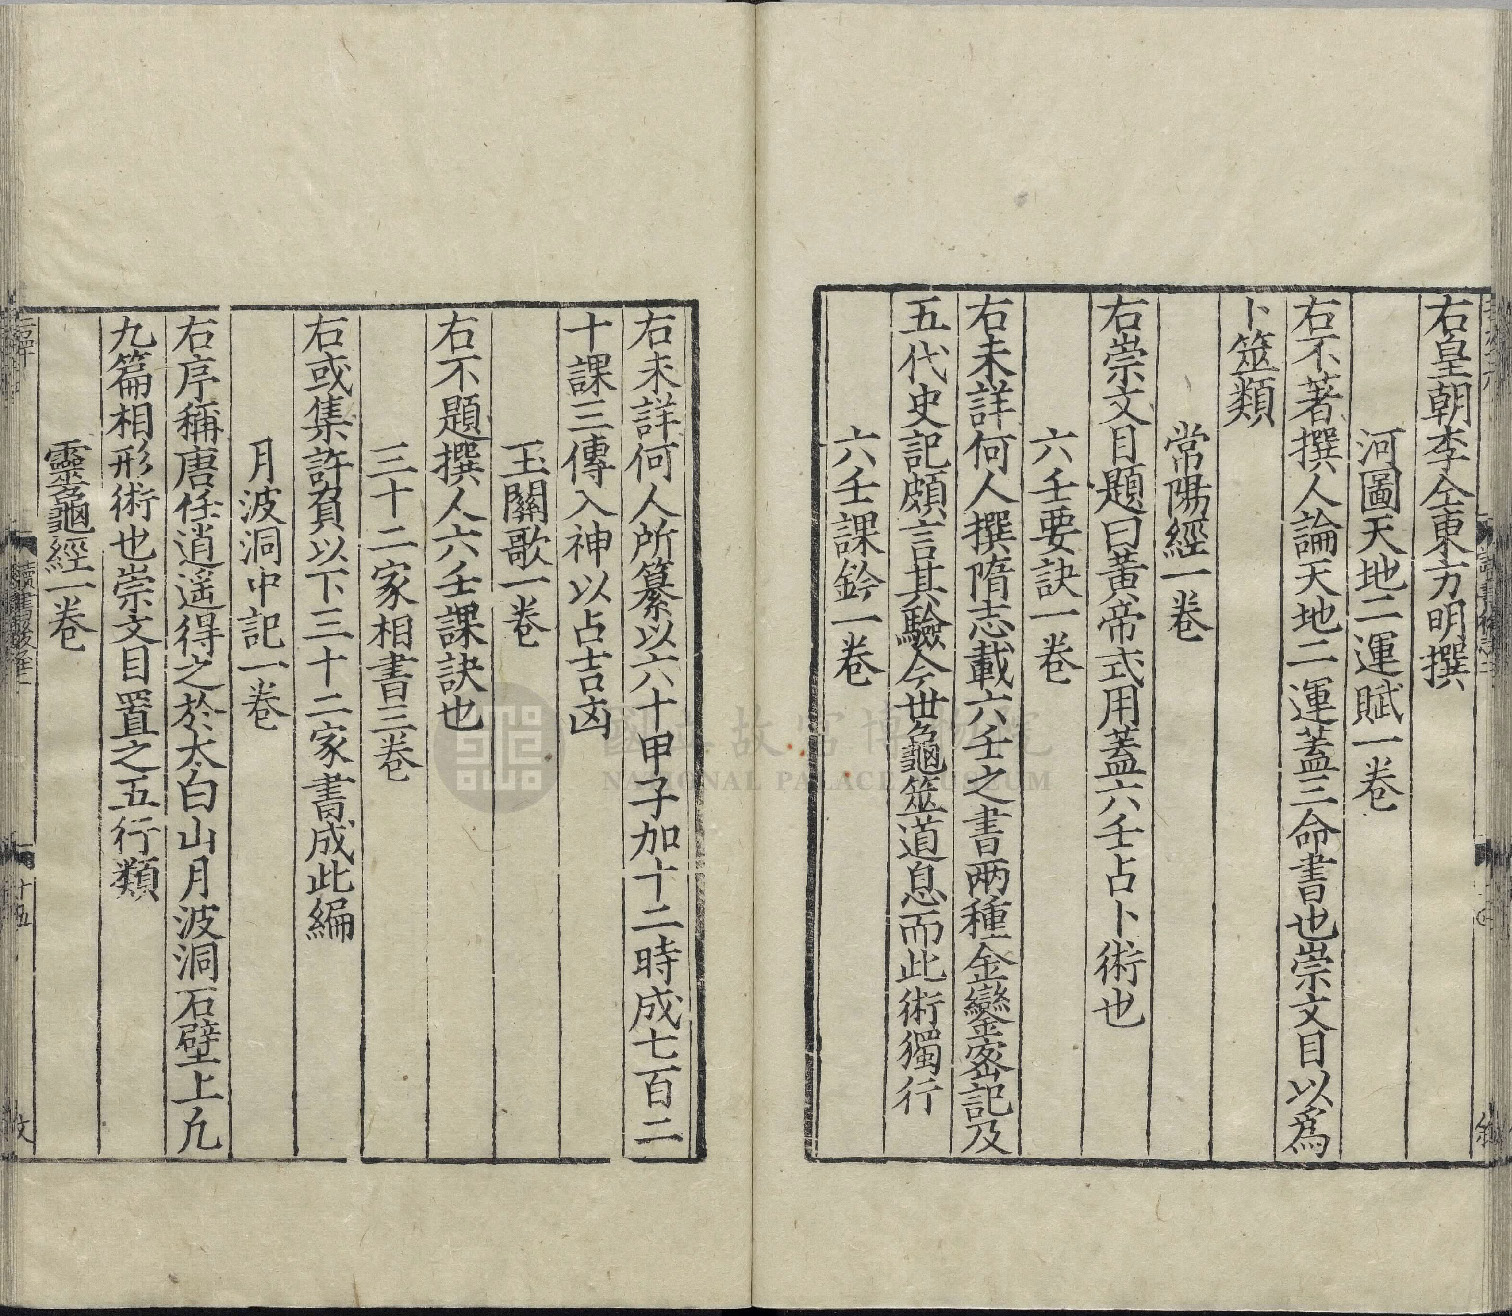 右皇朝李仝東方明撰
河圖天地二運賦一卷
右不著撰人論天地二運蓋三命書也崇文目以爲
卜筮類
常陽經一卷
右崇文目題曰黃帝式用蓋六壬占卜術也
六壬要訣一卷
右未詳何人撰隋志載六壬之書兩種金鑾密記及
五代史記頗言其驗今世龜筮道息而此術獨行
六壬課鈐一卷
右未詳何人所纂以六十甲子加十二時成七百二
十課三傳入神以占吉凶
玉關歌一卷
右不題撰人六壬課訣也
三十二家相書三卷
右或集許負以下三十二家書成此編
月波洞中記一卷
右序稱唐任逍遙得之於太白山月波洞石壁上凡
九篇相形術也崇文目置之五行類
靈龜經一卷
讀書後志二
十五
國立故宮博物院
NATIONAL PALACE MUSEUM